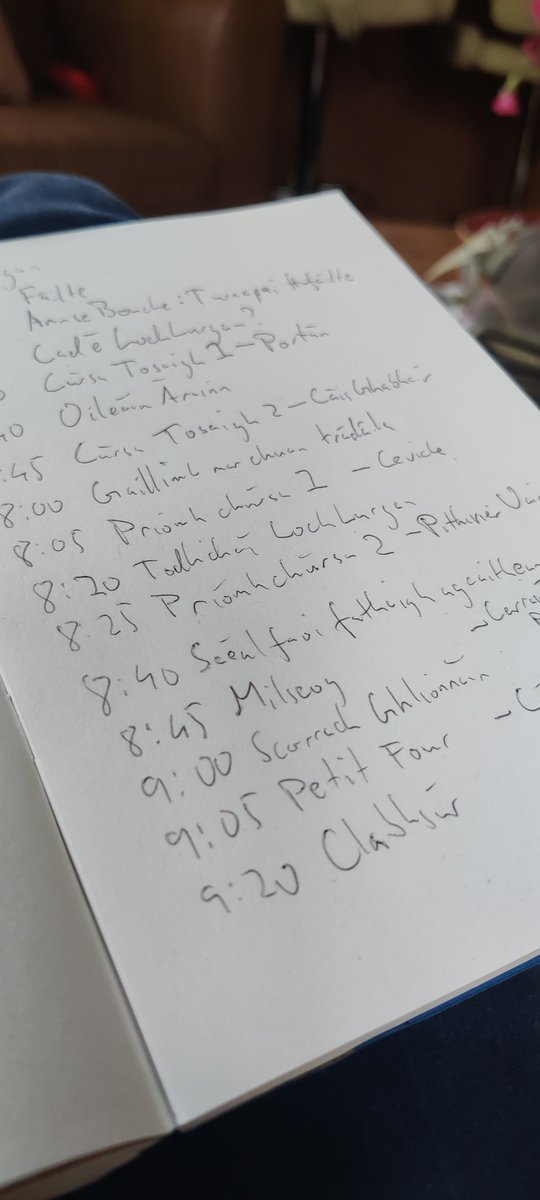 Fáilte
Amuse Bouche: Turnapaí
Cad é Loch Lurgan?
Cúrsa Tosaigh 1 – Portán
40 Oileáin Árainn
:45 Cúrsa Tosaigh 2 – Cáis Ghabhair
8:00 Gaillimh mar chuan trádála
8:05 Príomhchúrsa 1 – Ceviche
8:20 Todhchaí Loch Lurgan
8:25 Príomhchúrsa 2 –
8:40 Scéal faoi fathaigh
8:45 Milseog
9:00 Scorrach Ghlionnáin
9:05 Petit Four –
9:20 Clabhsúr